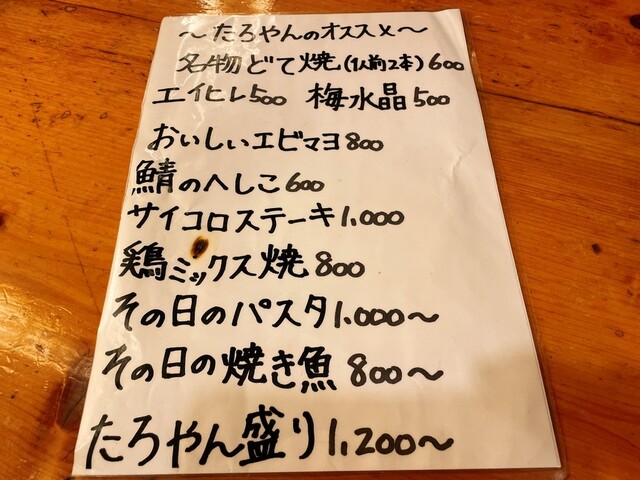 ～たろやんのオススメ～
名物どて焼(1人前2本)600
エイヒレ500 梅水晶500
おいしいエビマヨ800
鯖のへしこ600
サイコロステーキ1,000
鶏ミックス焼800
その日のパスタ1,000～
その日の焼き魚800～
たろやん盛り1,200～